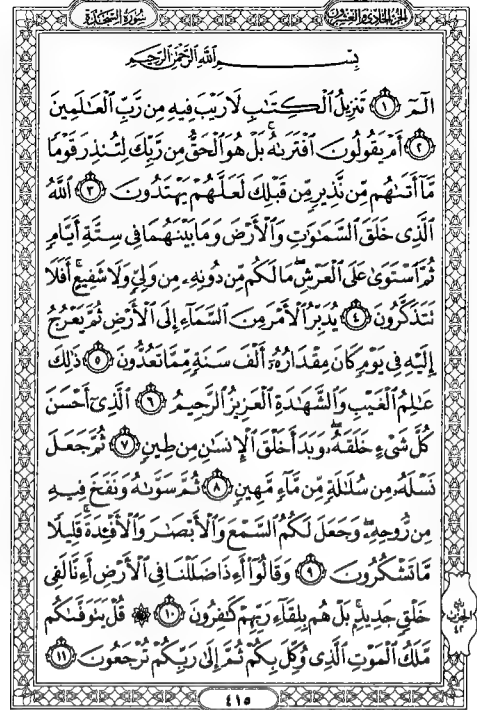 سُورَةُ السَّجْدَةِ
الجُزْءُ الحَادِي وَالعِشْرُونَ
بِسْمِ اللَّهِ الرَّحْمَٰنِ الرَّحِيمِ
الٓمٓ ١ تَنزِيلُ الْكِتَابِ لَا رَيْبَ فِيهِ مِن رَّبِّ الْعَالَمِينَ
٢ أَمْ يَقُولُونَ افْتَرَاهُ ۚ بَلْ هُوَ الْحَقُّ مِن رَّبِّكَ لِتُنذِرَ قَوْمًا
مَّا أَتَاهُم مِّن نَّذِيرٍ مِّن قَبْلِكَ لَعَلَّهُمْ يَهْتَدُونَ ٣ اللَّهُ
الَّذِي خَلَقَ السَّمَاوَاتِ وَالْأَرْضَ وَمَا بَيْنَهُمَا فِي سِتَّةِ أَيَّامٍ
ثُمَّ اسْتَوَىٰ عَلَى الْعَرْشِ ۖ مَا لَكُم مِّن دُونِهِ مِن وَلِيٍّ وَلَا شَفِيعٍ ۚ أَفَلَا
تَتَذَكَّرُونَ ٤ يُدَبِّرُ الْأَمْرَ مِنَ السَّمَاءِ إِلَى الْأَرْضِ ثُمَّ يَعْرُجُ
إِلَيْهِ فِي يَوْمٍ كَانَ مِقْدَارُهُ أَلْفَ سَنَةٍ مِّمَّا تَعُدُّونَ ٥ ذَٰلِكَ
عَالِمُ الْغَيْبِ وَالشَّهَادَةِ الْعَزِيزُ الرَّحِيمُ ٦ الَّذِي أَحْسَنَ
كُلَّ شَيْءٍ خَلَقَهُ ۖ وَبَدَأَ خَلْقَ الْإِنسَانِ مِن طِينٍ ٧ ثُمَّ جَعَلَ
نَسْلَهُ مِن سُلَالَةٍ مِّن مَّاءٍ مَّهِينٍ ٨ ثُمَّ سَوَّاهُ وَنَفَخَ فِيهِ
مِن رُّوحِهِ ۖ وَجَعَلَ لَكُمُ السَّمْعَ وَالْأَبْصَارَ وَالْأَفْئِدَةَ ۚ قَلِيلًا
مَّا تَشْكُرُونَ ٩ وَقَالُوا أَءِذَا ضَلَلْنَا فِي الْأَرْضِ أَءِنَّا لَفِي
خَلْقٍ جَدِيدٍ ۚ بَلْ هُم بِلِقَاءِ رَبِّهِمْ كَافِرُونَ ١٠ ۞ قُلْ يَتَوَفَّاكُم
مَّلَكُ الْمَوْتِ الَّذِي وُكِّلَ بِكُمْ ثُمَّ إِلَىٰ رَبِّكُمْ تُرْجَعُونَ ١١
الحزب
٤٢
٤١٥